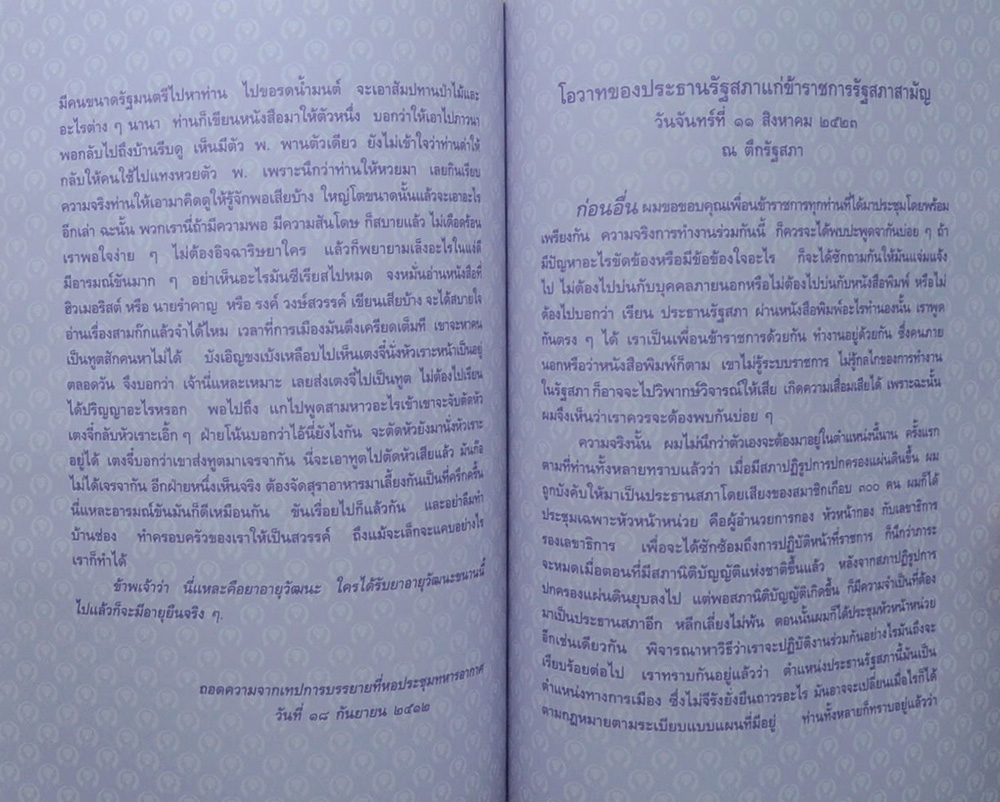 มีคนขนาดรัฐมนตรีไปหาท่าน ไปขอรดน้ำมนต์ จะเอาสัมปทานป่าไม้และ
อะไรต่าง ๆ นานา ท่านก็เขียนหนังสือมาให้ตัวหนึ่ง บอกว่าให้เอาไปภาวนา
พอกลับไปถึงบ้านรีบดู เห็นมีตัว พ. พานตัวเดียว ยังไม่เข้าใจว่าท่านด่าให้
กลับให้คนใช้ไปแทงหวยตัว พ. เพราะนึกว่าท่านให้หวยมา เลยกินเรียบ
ความจริงท่านให้เอามาคิดดูให้รู้จักพอเสียบ้าง ใหญ่โตขนาดนั้นแล้วจะเอาอะไร
อีกเล่า ฉะนั้น พวกเรานี่ถ้ามีความพอ มีความสันโดษ ก็สบายแล้ว ไม่เดือดร้อน
เราพอใจง่าย ๆ ไม่ต้องอิจฉาริษยาใคร แล้วก็พยายามเล็งอะไรในแง่ดี
มีอารมณ์ขันมาก ๆ อย่าเห็นอะไรมันซีเรียสไปหมด จงหมั่นอ่านหนังสือที่
ฮิวเมอริสต์ หรือ นายรำคาญ หรือ รงค์ วงษ์สวรรค์ เขียนเสียบ้าง จะได้สบายใจ
อ่านเรื่องสามก๊กแล้วจำได้ไหม เวลาที่การเมืองมันตึงเครียดเต็มที เขาจะหาคน
เป็นทูตสักคนหาไม่ได้ บังเอิญขงเบ้งเหลือบไปเห็นเตงจี๋นั่งหัวเราะหน้าเป็นอยู่
ตลอดวัน จึงบอกว่า เจ้านี่แหละเหมาะ เลยส่งเตงจี๋ไปเป็นทูต ไม่ต้องไปเรียน
ได้ปริญญาอะไรหรอก พอไปถึง แกไปพูดสามหาวอะไรเข้าเขาจะจับตัดหัว
เตงจี๋กลับหัวเราะเอิ๊ก ๆ ฝ่ายโน้นบอกว่าไอ้นี่ยังไงกัน จะตัดหัวยังมานั่งหัวเราะ
อยู่ได้ เตงจี๋บอกว่าเขาส่งทูตมาเจรจากัน นี่จะเอาทูตไปตัดหัวเสียแล้ว มันก็อ
ไม่ได้เจรจากัน อีกฝ่ายหนึ่งเห็นจริง ต้องจัดสุราอาหารมาเลี้ยงกันเป็นที่ครึกครื้น
นี่แหละอารมณ์ขันมันก็ดีเหมือนกัน ขันเรื่อยไปก็แล้วกัน และอย่าลืมทำ
บ้านช่อง ทำครอบครัวของเราให้เป็นสวรรค์ ถึงแม้จะเล็กจะแคบอย่างไร
เราก็ทำได้
ข้าพเจ้าว่า นี่แหละคือยาอายุวัฒนะ ใครได้รับยาอายุวัฒนะขนานนี้
ไปแล้วก็จะมีอายุยืนจริง ๆ.
ถอดความจากเทปการบรรยายที่หอประชุมทหารอากาศ
วันที่ ๑๘ กันยายน ๒๕๑๒
โอวาทของประธานรัฐสภาแก่ข้าราชการรัฐสภาสามัญ
วันจันทร์ที่ ๑๑ สิงหาคม ๒๕๒๓
ณ ตึกรัฐสภา
ก่อนอื่น ผมขอขอบคุณเพื่อนข้าราชการทุกท่านที่ได้มาประชุมโดยพร้อม
เพรียงกัน ความจริงการทำงานร่วมกันนี้ ก็ควรจะได้พบปะพูดจากันบ่อย ๆ ถ้า
มีปัญหาอะไรขัดข้องหรือมีข้อข้องใจอะไร ก็จะได้ซักถามกันให้มันแจ่มแจ้ง
ไป ไม่ต้องไปบ่นกับบุคคลภายนอกหรือไม่ต้องไปบ่นกับหนังสือพิมพ์ หรือไม่
ต้องไปบอกว่า เรียน ประธานรัฐสภา ผ่านหนังสือพิมพ์อะไรทำนองนั้น เราพูด
กันตรง ๆ ได้ เราเป็นเพื่อนข้าราชการด้วยกัน ทำงานอยู่ด้วยกัน ซึ่งคนภาย
นอกหรือว่าหนังสือพิมพ์ก็ตาม เขาไม่รู้ระบบราชการ ไม่รู้กลไกของการทำงาน
ในรัฐสภา ก็อาจจะไปวิพากษ์วิจารณ์ให้เสีย เกิดความเสื่อมเสียได้ เพราะฉะนั้น
ผมจึงเห็นว่าเราควรจะต้องพบกันบ่อย ๆ
ความจริงนั้น ผมไม่นึกว่าตัวเองจะต้องมาอยู่ในตำแหน่งนี้นาน ครั้งแรก
ตามที่ท่านทั้งหลายทราบแล้วว่า เมื่อมีสภาปฏิรูปการปกครองแผ่นดินขึ้น ผม
ถูกบังคับให้มาเป็นประธานสภาโดยเสียงของสมาชิกเกือบ ๓๐๐ คน ผมก็ได้
ประชุมเฉพาะหัวหน้าหน่วย คือผู้อำนวยการกอง หัวหน้ากอง กับเลขาธิการ
รองเลขาธิการ เพื่อจะได้ซักซ้อมถึงการปฏิบัติหน้าที่ราชการ ก็นึกว่าภาระ
จะหมดเมื่อตอนที่มีสภานิติบัญญัติแห่งชาติขึ้นแล้ว หลังจากสภาปฏิรูปการ
ปกครองแผ่นดินยุบลงไป แต่พอสภานิติบัญญัติเกิดขึ้น ก็มีความจำเป็นที่ต้อง
มาเป็นประธานสภาอีก หลีกเลี่ยงไม่พ้น ตอนนั้นผมก็ได้ประชุมหัวหน้าหน่วย
อีกเช่นเดียวกัน พิจารณาหาวิธีว่าเราจะปฏิบัติงานร่วมกันอย่างไรมันถึงจะ
เรียบร้อยต่อไป เราทราบกันอยู่แล้วว่า ตำแหน่งประธานรัฐสภานี้มันเป็น
ตำแหน่งทางการเมือง ซึ่งไม่จีรังยั่งยืนถาวรอะไร มันอาจจะเปลี่ยนเมื่อไรก็ได้
ตามกฎหมายตามระเบียบแบบแผนที่มีอยู่ ท่านทั้งหลายก็ทราบอยู่แล้วว่า